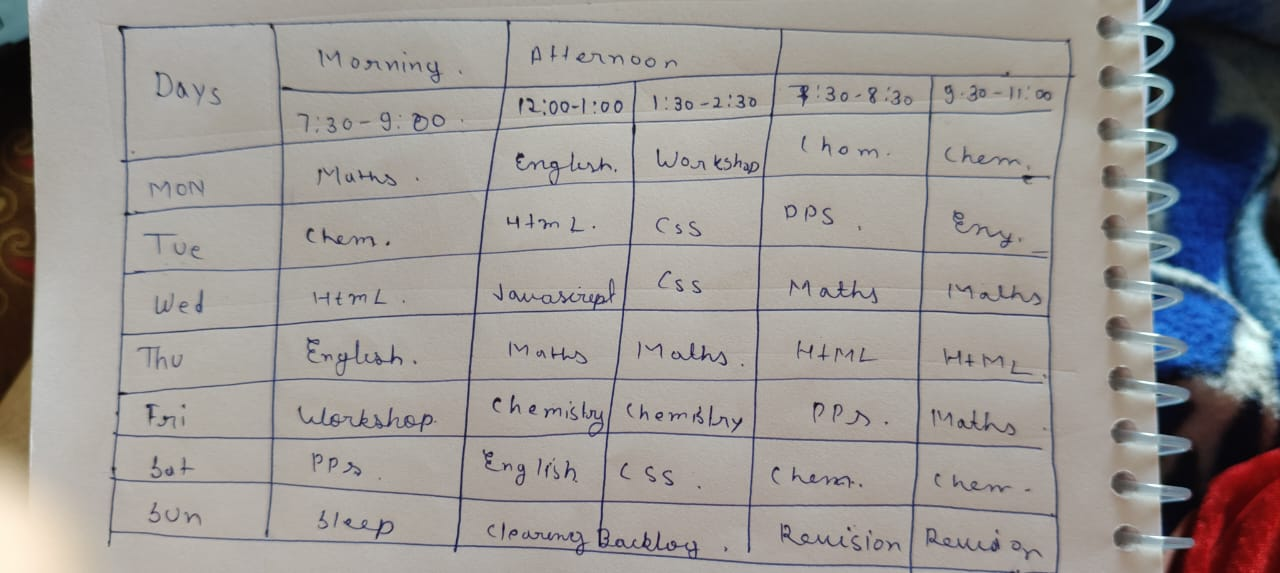 Days Morning. Afternoon
7:30-9:00. 12:00-1:00 1:30-2:30 7:30-8:30 9.30-11:00
MON Maths. English. Workshop Chem. Chem.
Tue Chem. HtmL. CSS PPS. Eng.
Wed HtmL. Javascript CSS Maths Maths
Thu English. Maths Maths. HtML HtML.
Fri Workshop. Chemistry Chemistry PPs. Maths.
Sat PPs. English CSS. Chem. Chem.
Sun Sleep Clearing Backlog. Revision Revision